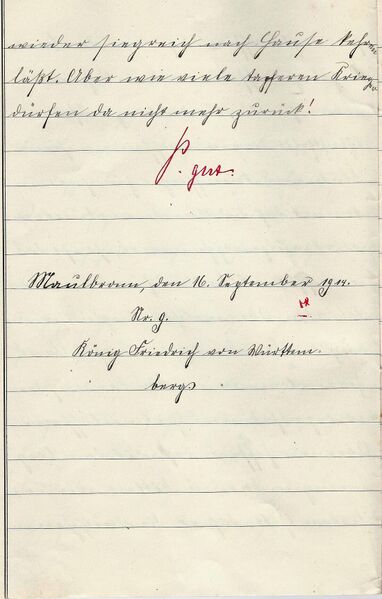 wieder siegreich nach Hause kehren
läßt. Aber wie viele tapferen Krieger
dürfen da nicht mehr zurück!
gut.
Maulbronn, den 16. September 1914.
Nr. 9.
König Friedrich von Württem-
berg.